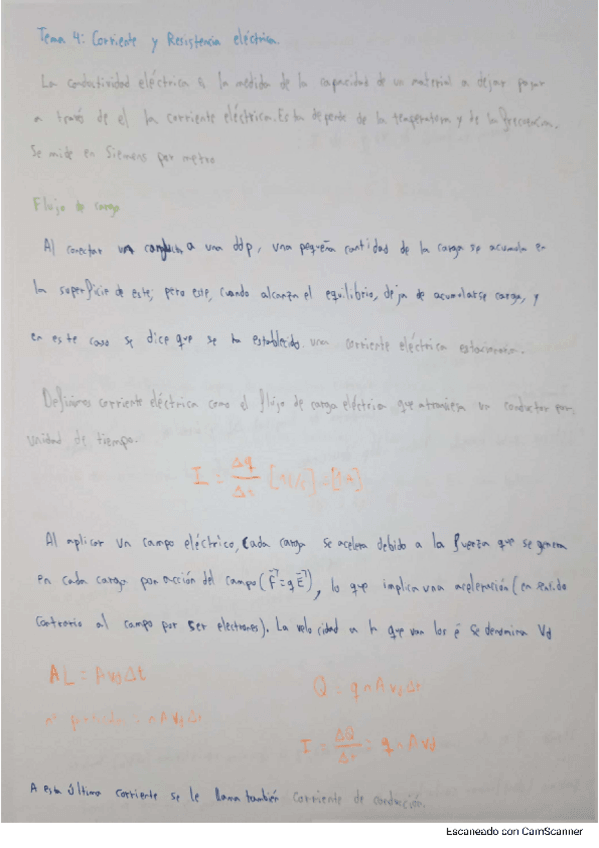 Tema 4: Corriente y Resistencia eléctrica.
La conductividad eléctrica es la medida de la capacidad de un material a dejar pasar
a través de el la corriente eléctrica. Esta depende de la temperatura y de la frecuencia.
Se mide en Siemens por metro
Flujo de carga
Al conectar un conductor a una ddp, una pequeña cantidad de la carga se acumula en
la superficie de este, pero este, cuando alcanza el equilibrio, deja de acumularse carga, y
en este caso se dice que se ha establecido una corriente eléctrica estacionaria.
Definimos corriente eléctrica como el flujo de carga eléctrica que atraviesa un conductor por
unidad de tiempo.
I = Δq/Δt [C/s] = [A]
Al aplicar un campo eléctrico, cada carga se acelera debido a la fuerza que se genera
en cada carga por acción del campo (F⃗=qE⃗), lo que implica una aceleración (en sentido
contrario al campo por ser electrones). La velocidad a la que van los é se denomina Vd
AL = A vd Δt
Q = q n A vd Δt
nº n A vd Δt
I = ΔQ/Δt = q n A vd
A esta última corriente se le llama también corriente de conducción.
Escaneado con CamScanner